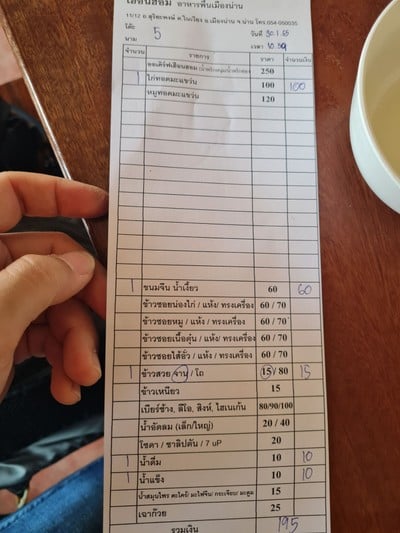 เฮือนฮอม อาหารพื้นเมืองน่าน
11/12 ถ.สุริยะพงษ์ ต.ในเวียง อ.เมืองน่าน จ.น่าน โทร.054-050035
โต๊ะ 5 วันที่ 30.1.65
นาม เวลา 10.59
จำนวน รายการ ราคา จำนวนเงิน
ออเดิร์ฟเฮือนฮอม (น้ำพริกหนุ่ม/น้ำพริกอ่อง) 250
1 ไก่ทอดมะแขว่น 100 100
หมูทอดมะแขว่น 120
1 ขนมจีน น้ำเงี้ยว 60 60
ข้าวซอยน่องไก่ / แห้ง/ ทรงเครื่อง 60 / 70
ข้าวซอยหมู / แห้ง / ทรงเครื่อง 60 / 70
ข้าวซอยเนื้อตุ๋น / แห้ง / ทรงเครื่อง 60 / 70
ข้าวซอยไส้อั่ว / แห้ง / ทรงเครื่อง 60 / 70
1 ข้าวสวย จาน / โถ 15 / 80 15
ข้าวเหนียว 15
เบียร์ช้าง, ลีโอ, สิงห์, ไฮเนเก้น 80/90/100
น้ำอัดลม (เล็ก/ใหญ่) 20 / 40
โซดา / ชาลิปตัน / 7 uP 20
1 น้ำดื่ม 10 10
1 น้ำแข็ง 10 10
น้ำสมุนไพร ตะไคร้/ มะไฟจีน/ กระเจี๊ยบ/ มะตูม 15
เฉาก๊วย 25
รวมเงิน 195